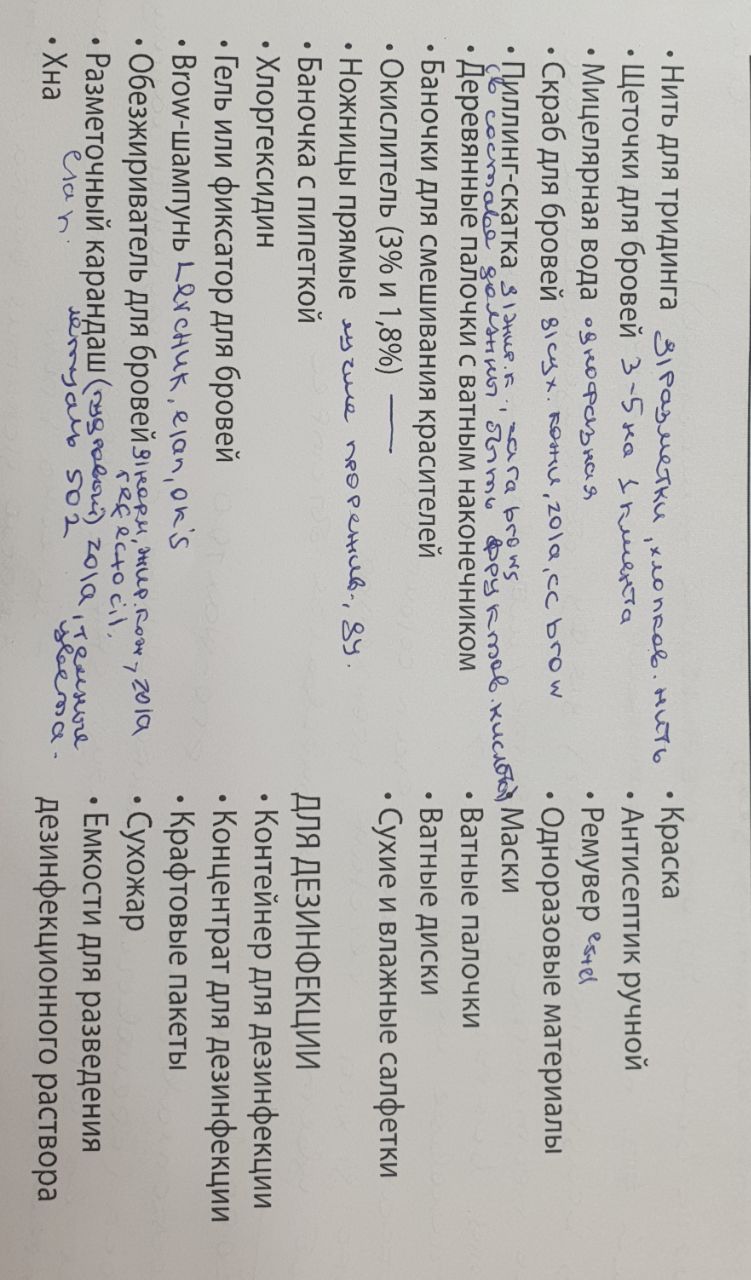 • Нить для тридинга д/разметки, хлопков. нить
• Щеточки для бровей 3-5 на 1 клиента
• Мицелярная вода однофазная
• Скраб для бровей д/сух. кожи, zola, cc brow
• Пиллинг-скатка д/жир.к., brows
(в составе должны быть фруктов. кислоты)
• Деревянные палочки с ватным наконечником
• Баночки для смешивания красителей
• Окислитель (3% и 1,8%) —
• Ножницы прямые лучше прорежив., зу.
• Баночка с пипеткой
• Хлоргексидин
• Гель или фиксатор для бровей
• Brow-шампунь elan, ok's
• Обезжириватель для бровей д/норм, жир. кож, zola
• Разметочный карандаш zola, темные
летуаль 502 цвета.
• Хна elan.
• Краска
• Антисептик ручной
• Ремувер estel
• Одноразовые материалы
• Маски
• Ватные палочки
• Ватные диски
• Сухие и влажные салфетки
ДЛЯ ДЕЗИНФЕКЦИИ
• Контейнер для дезинфекции
• Концентрат для дезинфекции
• Крафтовые пакеты
• Сухожар
• Емкости для разведения
дезинфекционного раствора